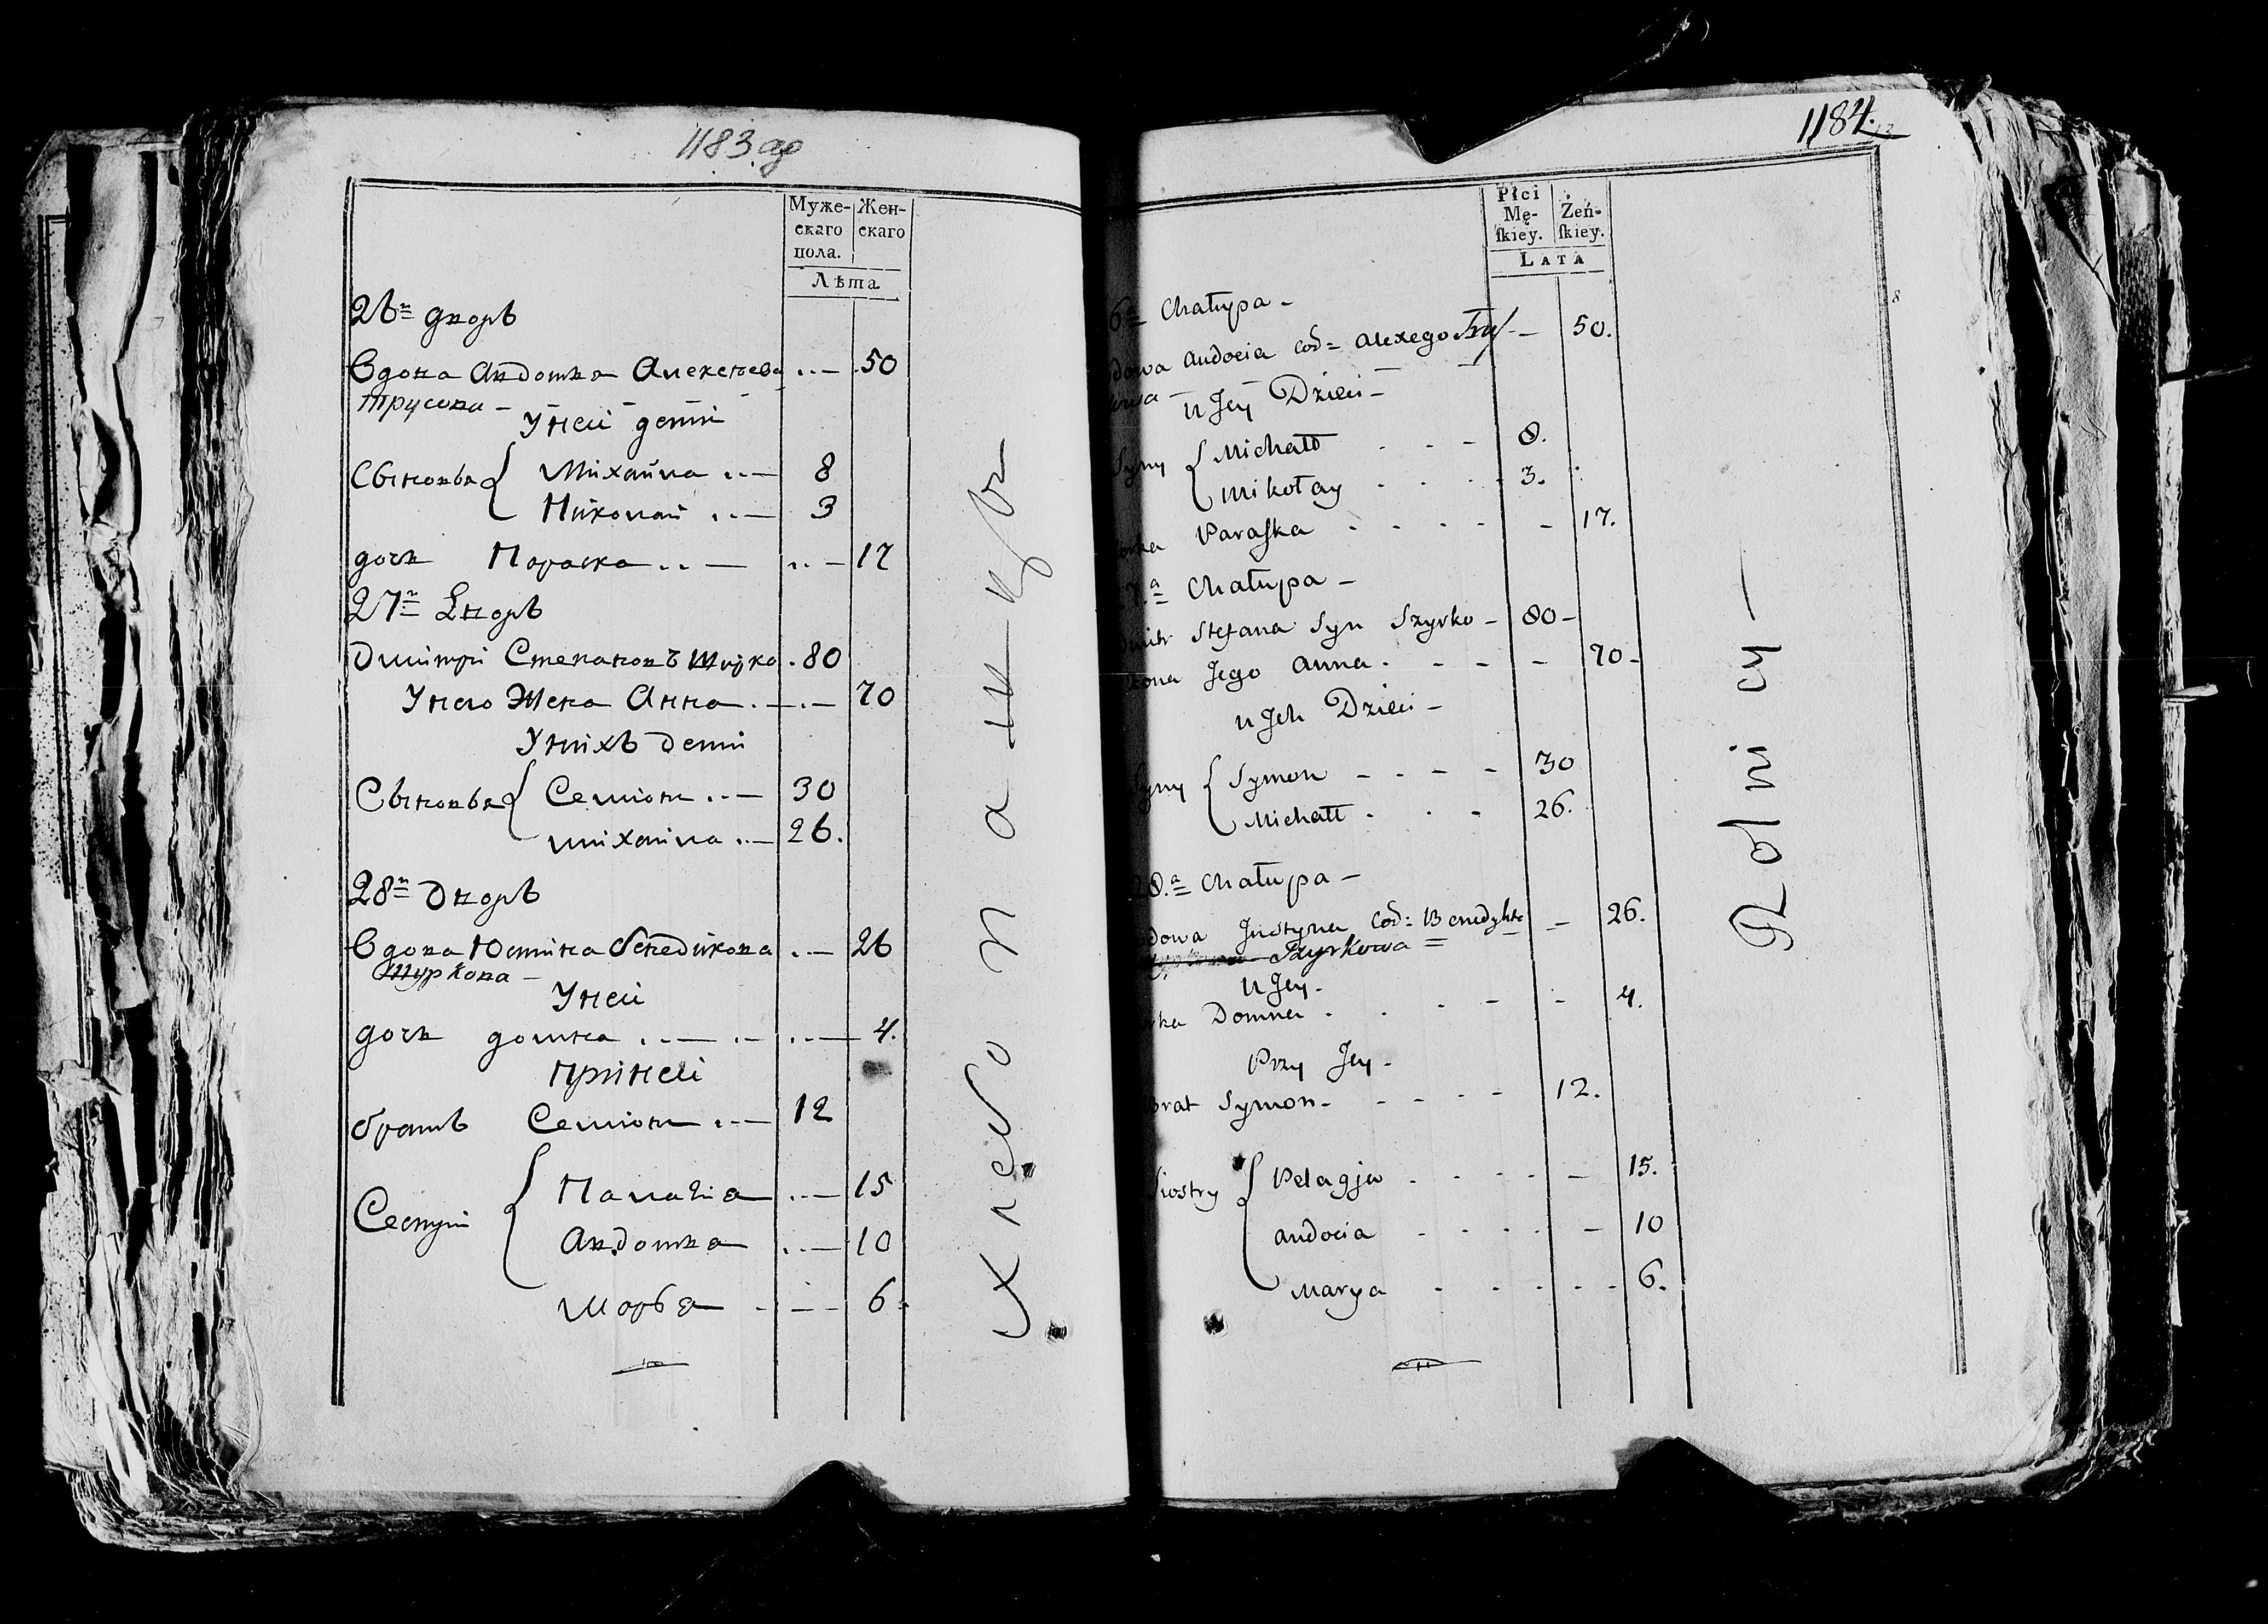 1183 об
Муже-
скаго
пола.
Жен-
скаго
Лѣта
26й дворъ
Вдова Авдотья Алексѣева
Трусова —
.. — 50
У ней дети
Сыновья { Михайла .. — 8
Николай .. — 3
дочь Параска .. — .. — 17
27й Дворъ
Дмитри Степановъ Шырко . 80
У него Жена Анна . — . — 70
У нихъ дети
Сыновья { Семион .. — 30
михайла .. — 26.
28й Дворъ
Вдова Юстина Бенедикова .. — 26
Шуркова —
У ней
дочь домна . . — . — . . — 4.
При ней
братъ Семион .. — 12
Сестри { Палагiа .. — 15
Авдотья .. — 10
Марья . — — 6.
Хлебопашцы
1184.
Płci
Mę-
ſkiey.
Żeń-
ſkiey.
LATA
6a Chałupa —
dowa Audocia Cod= Alexego Truſ — — 50.
owa —
u Jey Dzieci —
Syny { Michałł . - - 8.
Mikołay . . . 3.
orka Paraſka . . . - - 17.
7.a Chałupa —
Dmitr Stefana Syn Szyrko — 80 —
Żona Jego Anna . - - - 70 -
u Jch Dzieci —
Syny { Symon - - - - 30
Michałł . . - 26.
28.a Chałupa —
dowa Justyna Cod: Benedykta — 26.
Szyrkowa =
u Jey -
rka Domna . . . - - 4.
Przy Jey -
brat Symon - - - - - 12.
Siostry { Pelagja . . . - — 15.
Audocia . . . . — 10
Marya . . . . - 6.
Rolnicy —